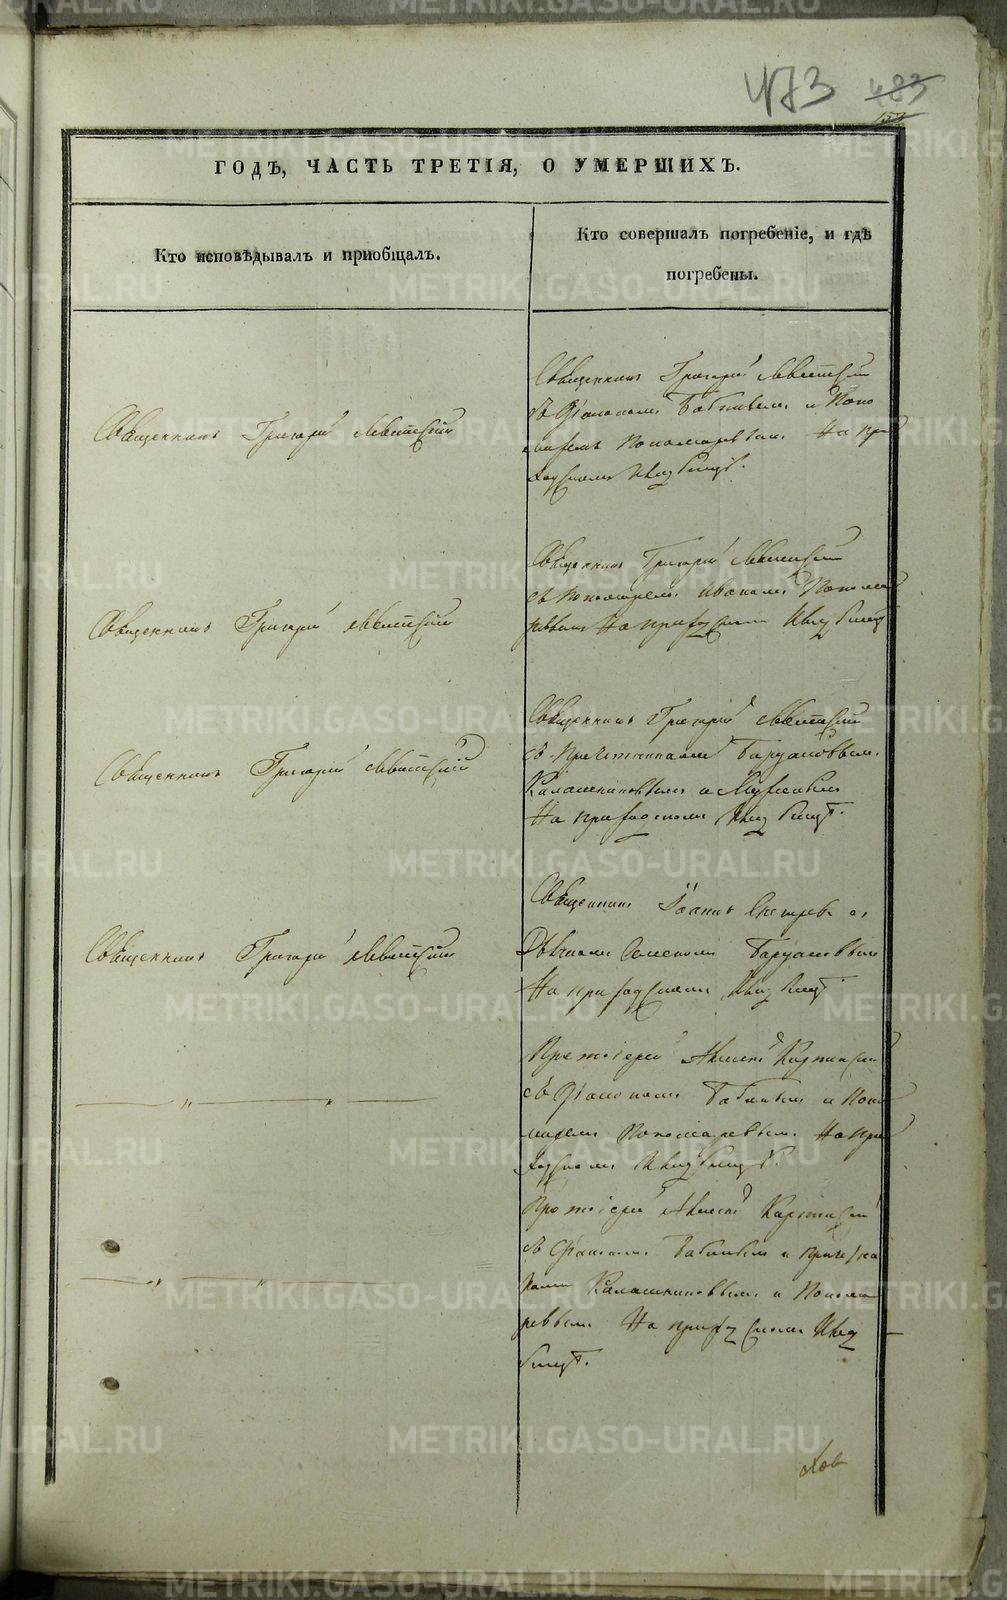 473 483
ГОДЪ, ЧАСТЬ ТРЕТІЯ, О УМЕРШИХЪ.
Кто исповѣдывалъ и пріобщалъ.
Кто совершалъ погребеніе, и гдѣ
погребены.
Священникъ Григорій Левитскій
съ Діакономъ Бабинымъ и Поно
маремъ Пономаревымъ. На при
ходскомъ кладбищѣ.
Священникъ Григорій Левитскій
Священникъ Григорій Левитскій
съ Пономаремъ Иваномъ Понома
ревымъ На приходскомъ кладбищѣ
Священникъ Григорій Левитскій
Священникъ Григорій Левитскій
съ Причетниками
Калашниковымъ и
На приходскомъ кладбищѣ.
Священникъ Григорій Левитскій
Священникъ Іоаннъ съ
На приходскомъ кладбищѣ
Священникъ Григорій Левитскій
Протоіерей Алексѣй
съ Діакономъ Бабинымъ и Поно
маремъ Пономаревымъ. На при
ходскомъ кладбищѣ.
Протоіерей Алексѣй
съ Діакономъ Бабинымъ и
Калашниковымъ и Понома
ревымъ На приходскомъ клад
бищѣ.
METRIKI.GASO-URAL.RU